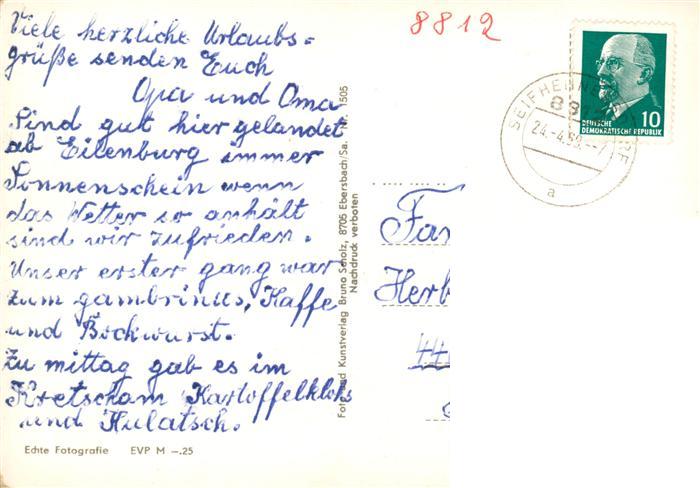 Viele herzliche Urlaubs=
grüße senden Euch
Opa und Oma
Sind gut hier gelandet
ab Eilenburg immer
Sonnenschein wenn
das Wetter so anhält
sind wir zufrieden.
Unser erster gang war
zum gambrinus, Kaffe
und Bockwurst.
Zu mittag gab es im
Kretscham Kartoffelklohs
und Hulatsch.
Echte Fotografie EVP M –.25
Foto und Kunstverlag Bruno Scholz, 8705 Ebersbach/Sa. Nr. 1505
Nachdruck verboten
8812
10
DEUTSCHE
DEMOKRATISCHE REPUBLIK
24.-4.69.--7
a
Fam
Herb